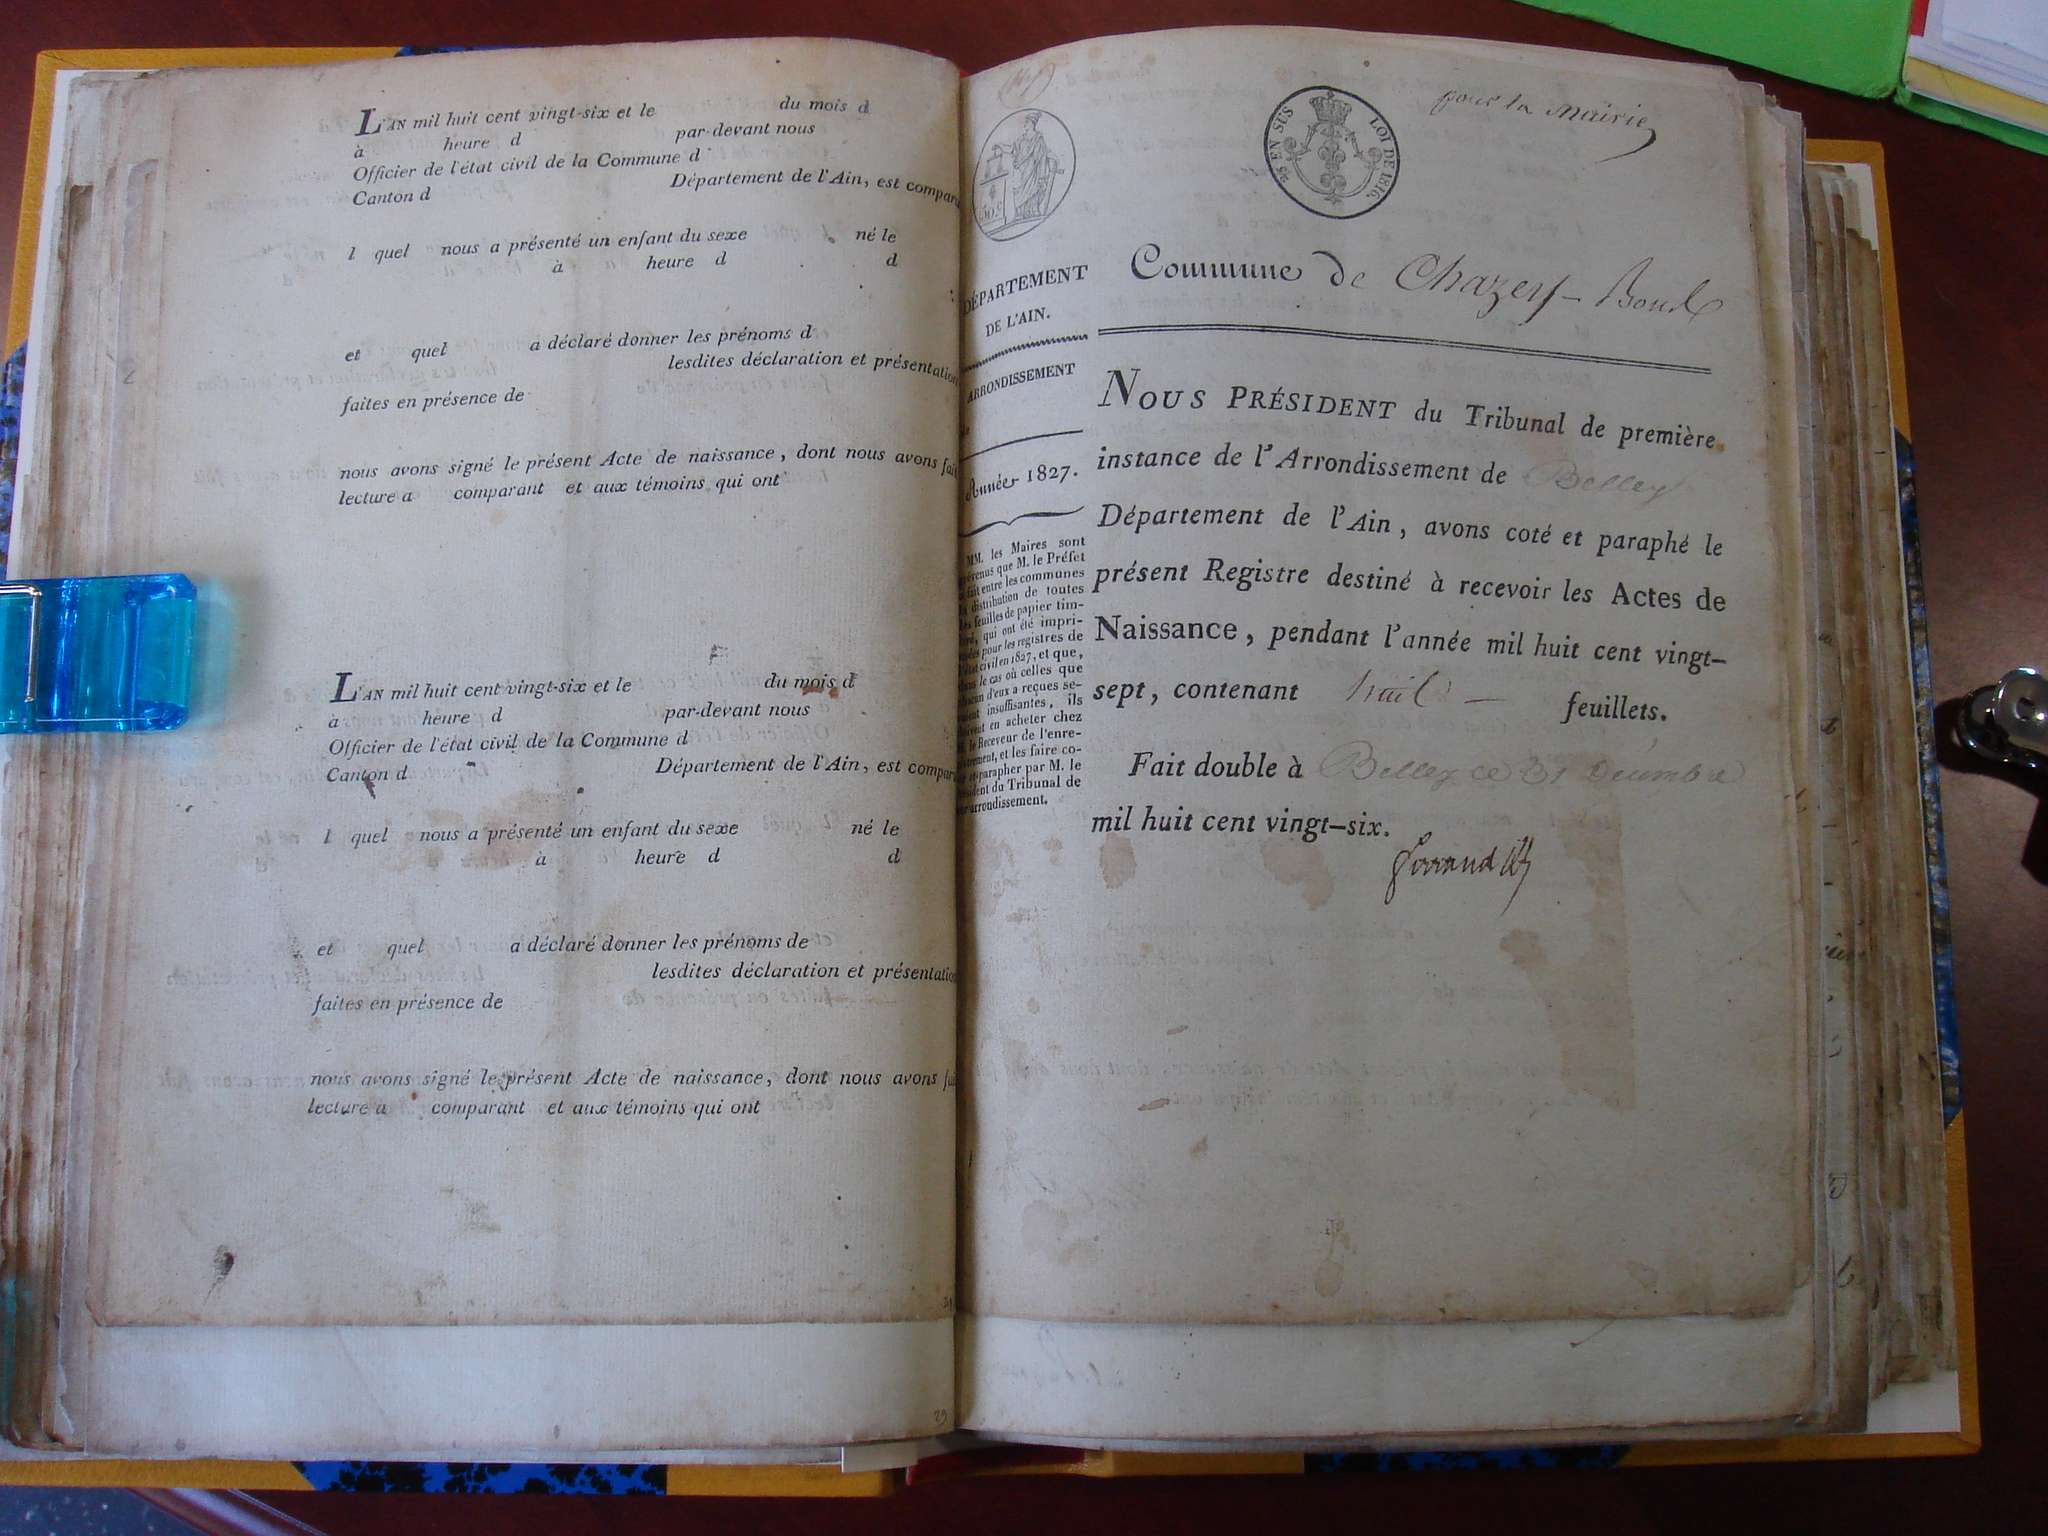 L'AN mil huit cent vingt-six et le du mois d
à heure d par-devant nous
Officier de l'état civil de la Commune d
Canton d Département de l'Ain, est compar
l quel nous a présenté un enfant du sexe né le
à heure d d
et quel a déclaré donner les prénoms d
lesdites déclaration et présentation
faites en présence de
nous avons signé le présent Acte de naissance, dont nous avons fait
lecture a comparant et aux témoins qui ont
L'AN mil huit cent vingt-six et le du mois d
à heure d par-devant nous
Officier de l'état civil de la Commune d
Canton d Département de l'Ain, est compar
l quel nous a présenté un enfant du sexe né le
à heure d d
et quel a déclaré donner les prénoms de
lesdites déclaration et présentation
faites en présence de
nous avons signé le présent Acte de naissance, dont nous avons fai
lecture a comparant et aux témoins qui ont
29
pour la Mairie
EN SUS LOI DE 1816.
50.c
Commune de Chazey-Bons
DÉPARTEMENT
DE L'AIN.
ARRONDISSEMENT
de
Année 1827.
MM. les Maires sont
prévenus que M. le Préfet
a fait entre les communes
la distribution de toutes
les feuilles de papier tim-
bré, qui ont été impri-
mées pour les registres de
l'état civil en 1827, et que,
dans le cas où celles que
chacun d'eux a reçues se-
raient insuffisantes, ils
doivent en acheter chez
M. le Receveur de l'enre-
gistrement, et les faire co-
ter et parapher par M. le
Président du Tribunal de
leur arrondissement.
NOUS PRÉSIDENT du Tribunal de première
instance de l'Arrondissement de Belley
Département de l'Ain, avons coté et paraphé le
présent Registre destiné à recevoir les Actes de
Naissance, pendant l'année mil huit cent vingt-
sept, contenant huit feuillets.
Fait double à Belley ce 31 Décembre
mil huit cent vingt-six.